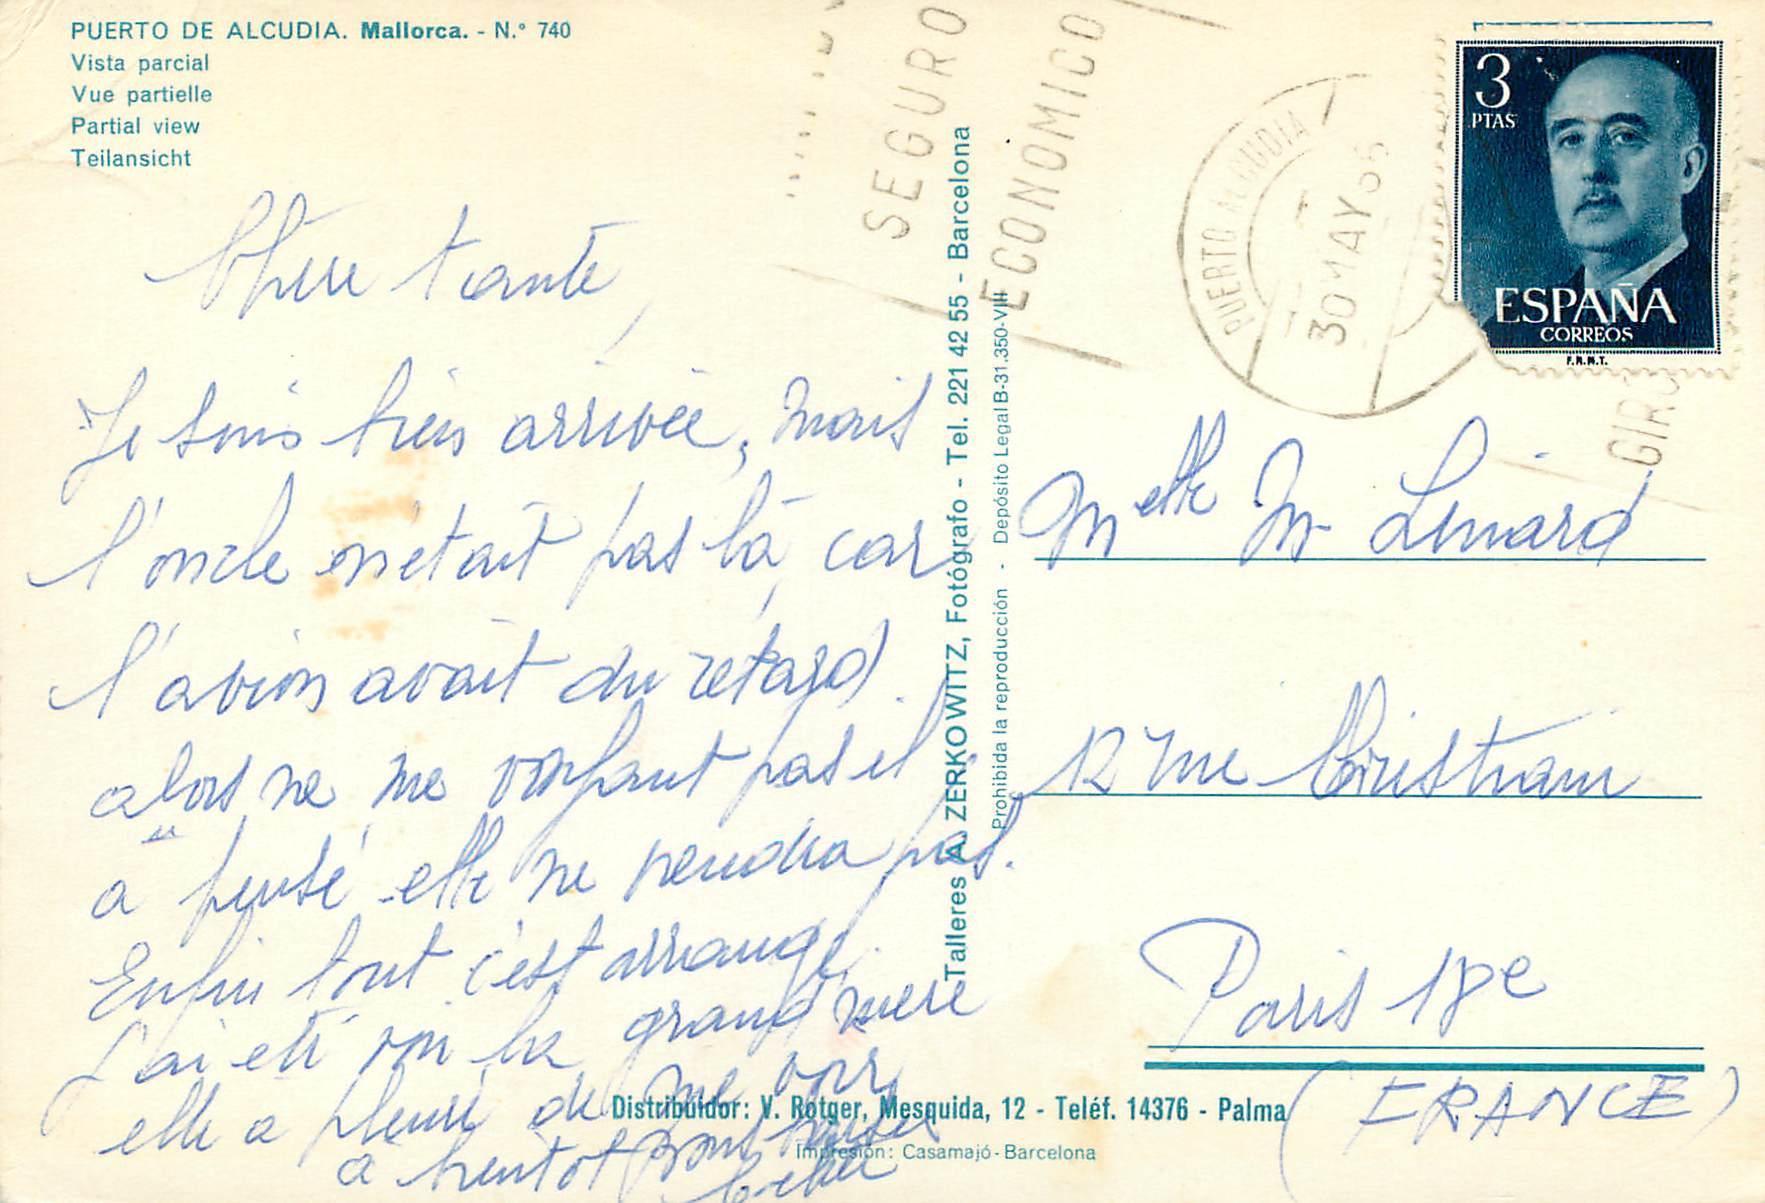 PUERTO DE ALCUDIA. Mallorca. - N.º 740
Vista parcial
Vue partielle
Partial view
Teilansicht
Chere tante,
Je suis bien arrivée, mais
l'oncle n'était pas là, car
l'avion avait du retard.
alors ne me voyant pas il
a pensé "elle ne viendra pas.
Enfin tout c'est arrangé.
J'ai été voir la grand mere
elle a pleuré de me voir,
a bientot bons baisers
Talleres A. ZERKOWITZ, Fotógrafo - Tel. 221 42 55 - Barcelona
Prohibida la reproducción - Depósito Legal B-31.350-VIII
SEGURO
ECONOMICO
GIRO
PUERTO ALCUDIA
30 MAY 66
3
PTAS
ESPAÑA
CORREOS
F.N.M.T.
Melle M Linard
12 rue Christiani
Paris 18e
(FRANCE)
Distribuidor: V. Rotger, Mesquida, 12 - Teléf. 14376 - Palma
Impresión: Casamajó-Barcelona